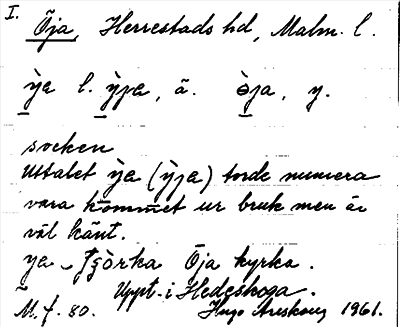 I.
Öja, Herrestads hd, Malm. l.
ỳa l. ỳja, ä. òja, y.
socken
Uttalet ỳa (ỳja) torde numera
vara kommet ur bruk men är
väl känt.
ya - kyrka Öja kyrka.
Uppt. i Hedeskoga.
M. f. 80. Hugo Areskoug 1961.